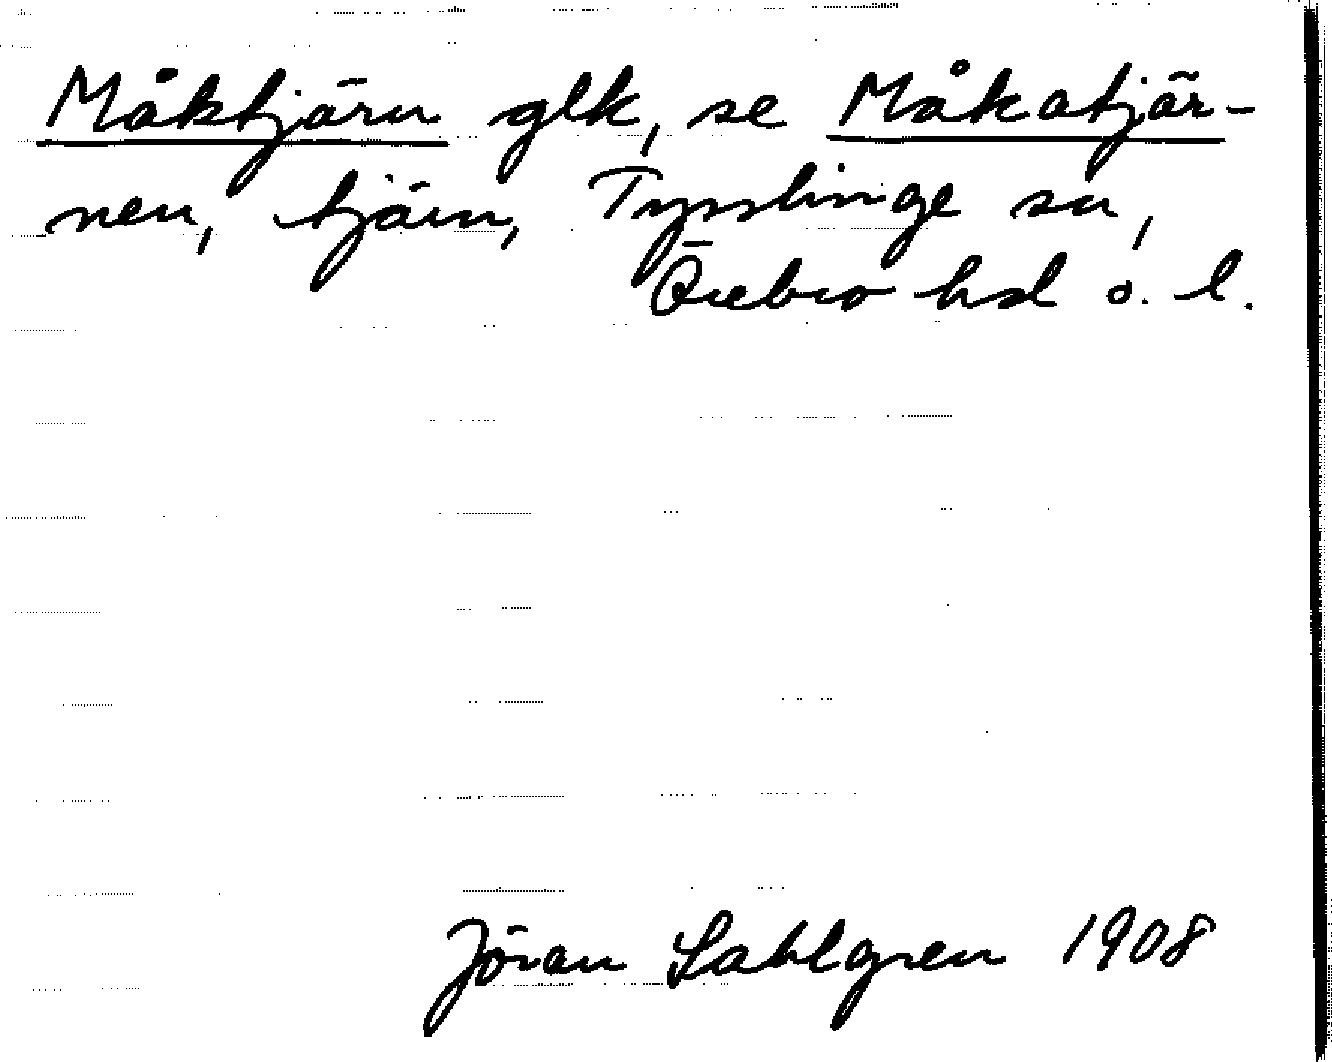 Måktjärn glk, se Måkatjär-
nen, tjärn, Tysslinge sn,
Örebro hd ö. l.
Jöran Sahlgren 1908